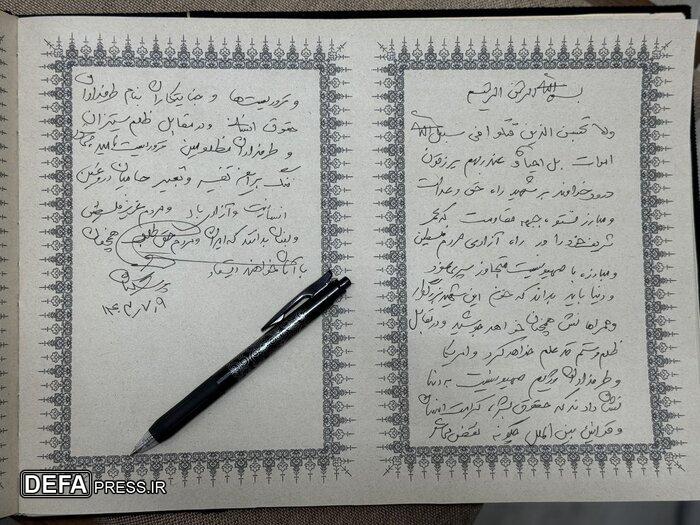 بسم الله الرحمن الرحیم
ولا تحسبن الذین قتلوا فی سبیل الله
امواتا بل احیاء عند ربهم یرزقون
درود خداوند بر شهید راه حق و عدالت
و مبارز نستوه جبهه مقاومت که عمر
شریف خود را در راه آزادی مردم فلسطین
و مبارزه با صهیونیست متجاوز سپری نمود
و دنیا باید بداند که خون این شهید بزرگوار
و همراهانش همچنان خواهد جوشید و در مقابل
ظلم و ستم قد علم خواهد کرد و امریکا
و طرفداران رژیم صهیونیست به دنیا
نشان دادند که حقوق بشر، کرامت انسان
و قوانین بین الملل چگونه نقض
و تروریست‌ها و جنایتکاران بنام طرفداران
حقوق انسان و در مقابل ظلم ستیزان
و طرفداران مظلومین تروریست نامیده
ننگ بر این تفسیر و تعبیر حامیان دروغین
انسانیت و آزادی باد و مردم عزیز فلسطین
و لبنان بدانند که ایران و مردم همچنان
با آنها خواهند ایستاد
پزشکیان
۱۴۰۳،۷،۹
DEFA PRESS.IR